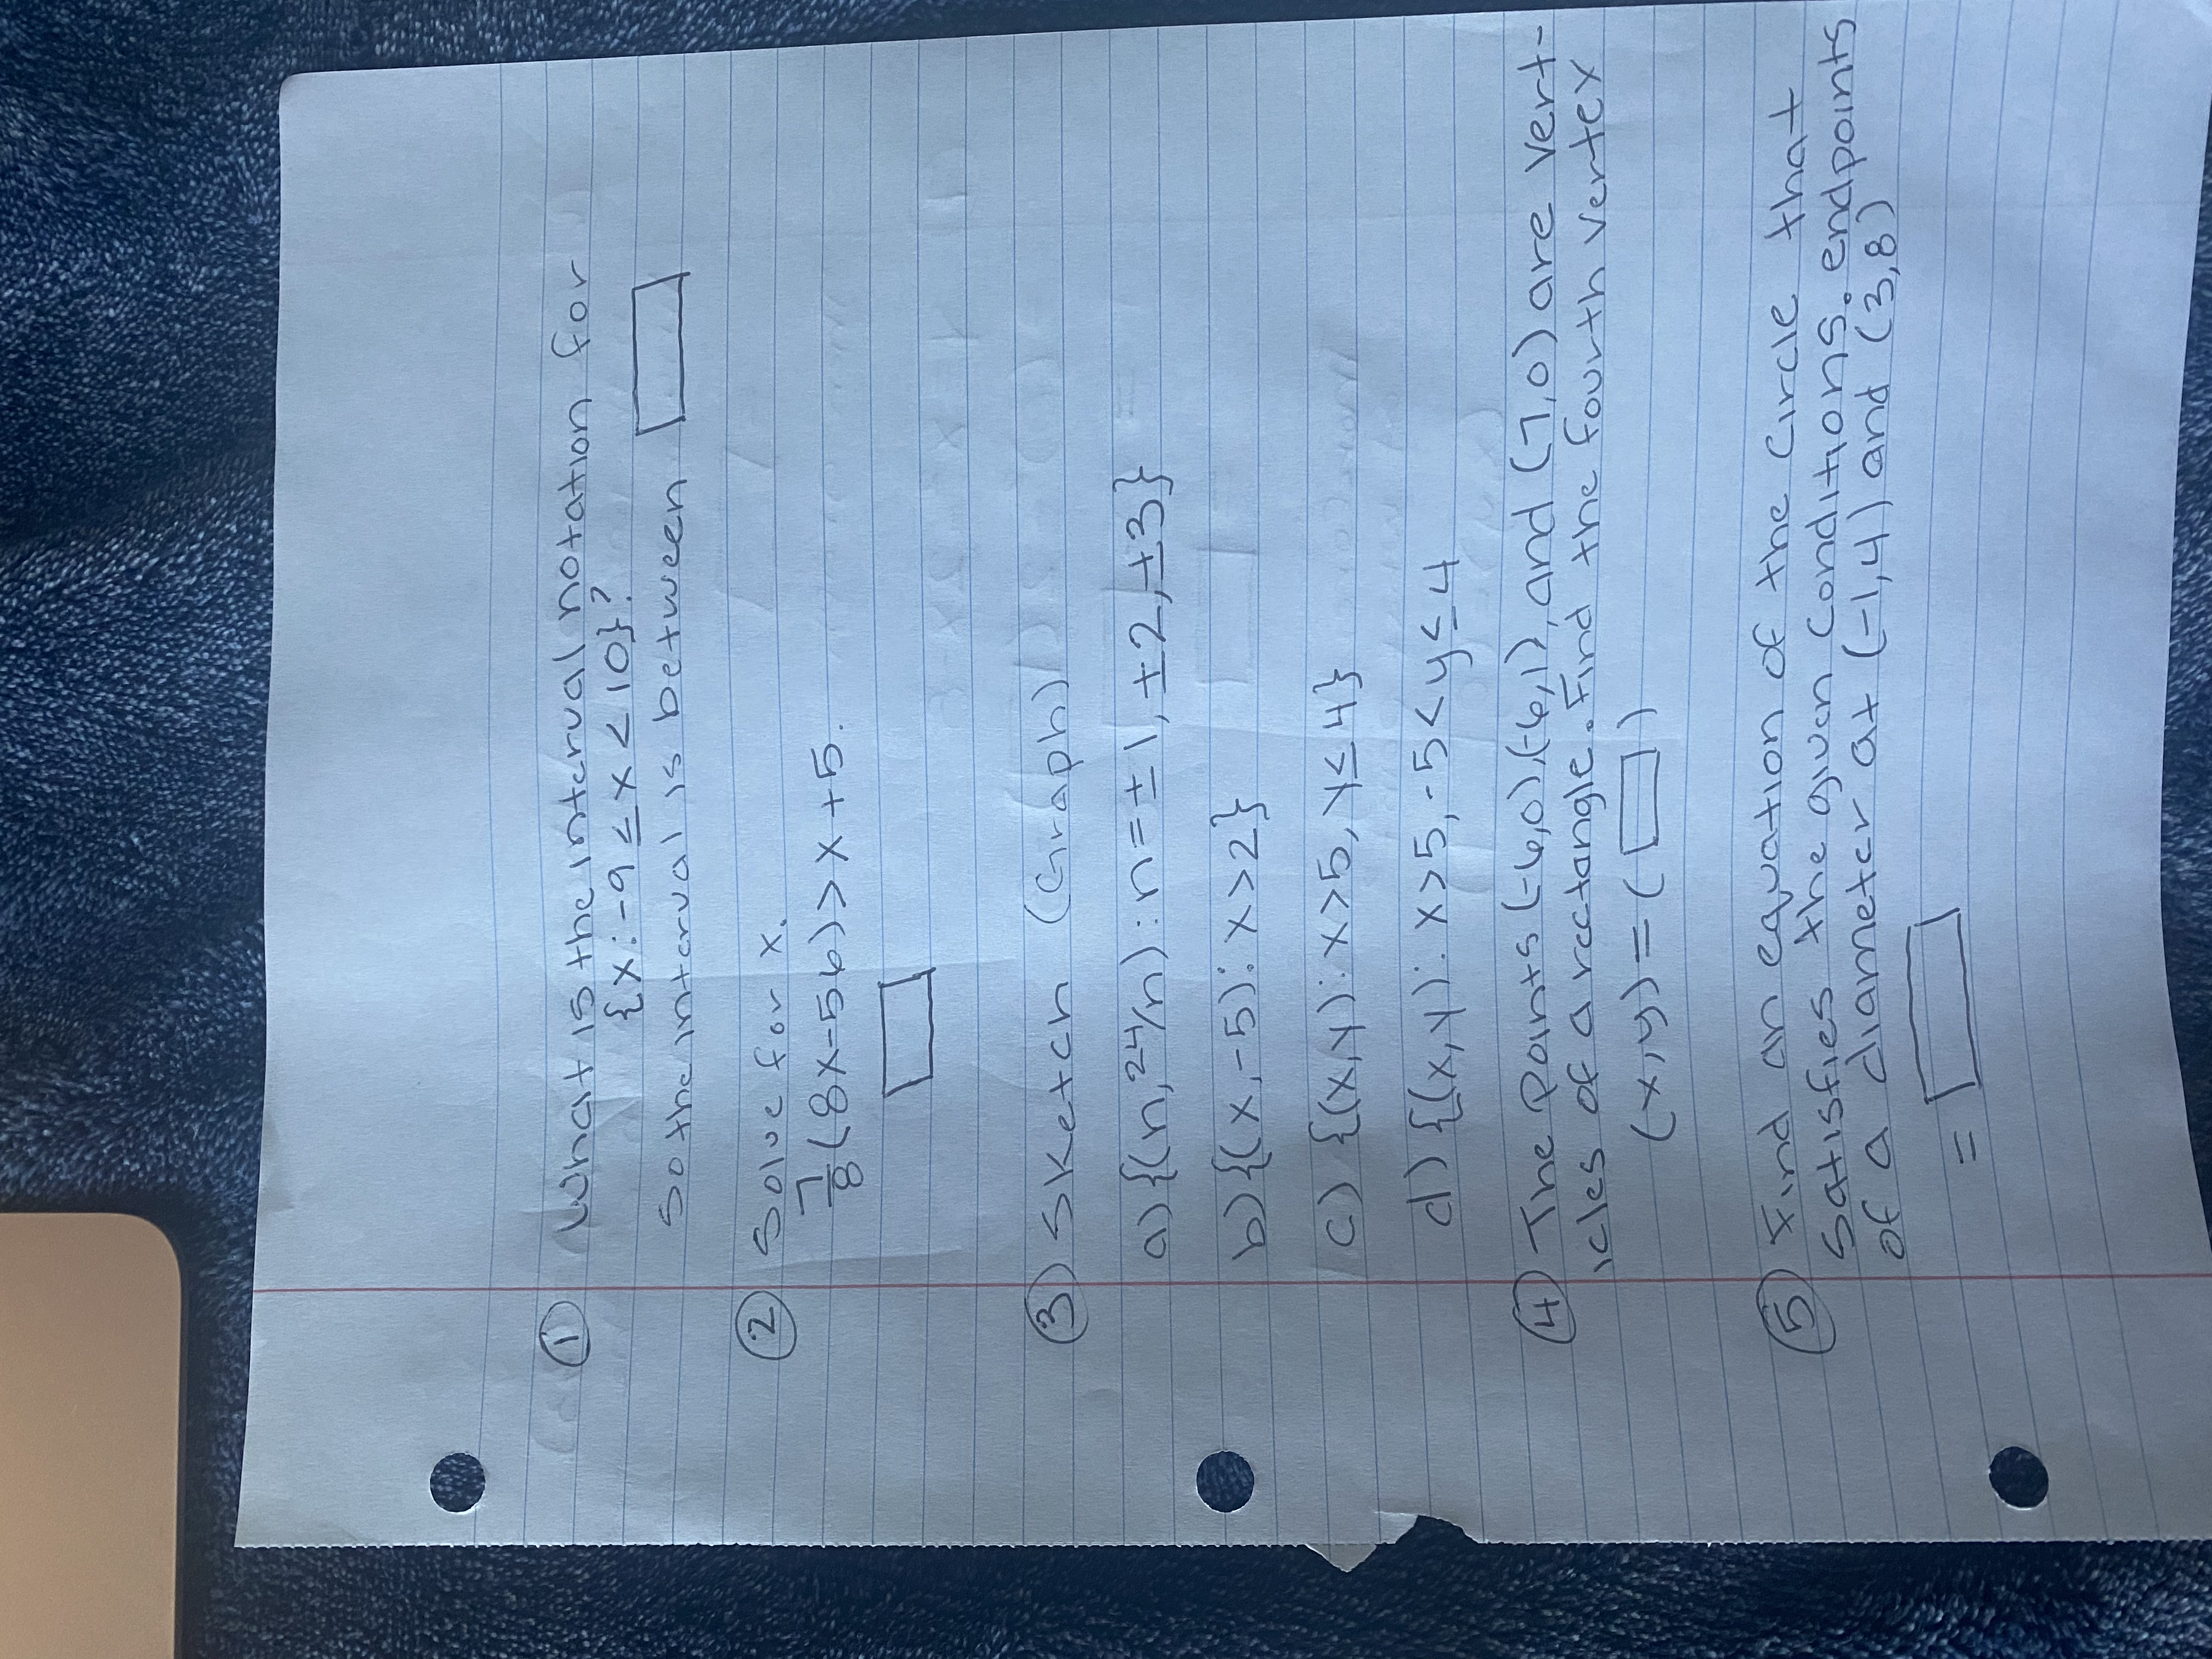 ① What is the interval notation for
{x:-9 ≤ x < 10}?
So the interval is between
② Solve for x.
7/8(8x-56)>x+5.
③ Sketch (Graph)
a){(n,24/n):n=±1,±2,±3}
b){(x,-5):x>2}
c) {(x,y):x>5,y≤4}
d) {(x,y):x>5,-5<y≤4
④ The Points (-6,0),(-6,1),and (7,0) are vert-
icles of a rectangle. Find the fourth vertex
(x,y)=( )
⑤ Find an equation of the circle that
satisfies the given conditions. endpoints
of a diameter at (-1,4) and (3,8)
=